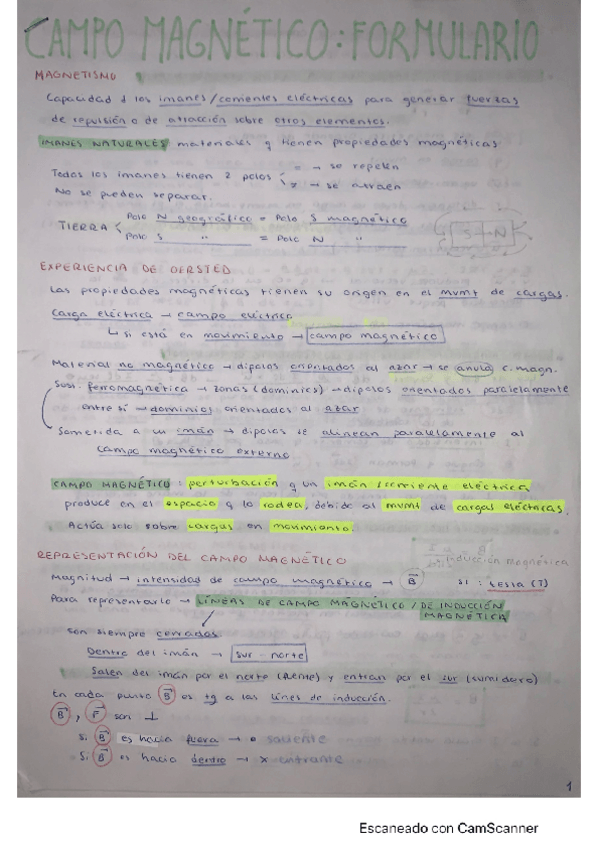 CAMPO MAGNÉTICO: FORMULARIO
MAGNETISMO
Capacidad d los imanes/corrientes eléctricas para generar fuerzas
de repulsión o de atracción sobre otros elementos.
IMANES NATURALES materiales q tienen propiedades magnéticas
Todos los imanes tienen 2 polos
= → se repelen
≠ → se atraen
No se pueden separar.
TIERRA
Polo N geográfico = Polo S magnético
Polo S " = Polo N "
S N
EXPERIENCIA DE OERSTED
Las propiedades magnéticas tienen su origen en el mvmt de cargas.
Carga eléctrica → campo eléctrico
↳ si está en movimiento → campo magnético
Material no magnético → dipolos orientados al azar → se anula c. magn.
Sust. ferromagnética → zonas (dominios) → dipolos orientados paralelamente
entre sí → dominios orientados al azar
Sometida a un imán → dipolos se alinean paralelamente al
campo magnético externo
CAMPO MAGNÉTICO: perturbación q un imán/corriente eléctrica
produce en el espacio q lo rodea, debido al mvmt de cargas eléctricas.
Actúa solo sobre cargas en movimiento.
REPRESENTACIÓN DEL CAMPO MAGNÉTICO
inducción magnética
Magnitud → intensidad de campo magnético → B⃗ SI: tesla (T)
Para representarlo → LÍNEAS DE CAMPO MAGNÉTICO / DE INDUCCIÓN
MAGNÉTICA
Son siempre cerradas
Dentro del imán → sur - norte
Salen del imán por el norte (fuente) y entran por el sur (sumidero)
En cada punto B⃗ es tg a las línes de inducción.
B⃗, F⃗ son ⊥
Si B⃗ es hacia fuera → • saliente
Si B⃗ es hacia dentro → x entrante
1
Escaneado con CamScanner